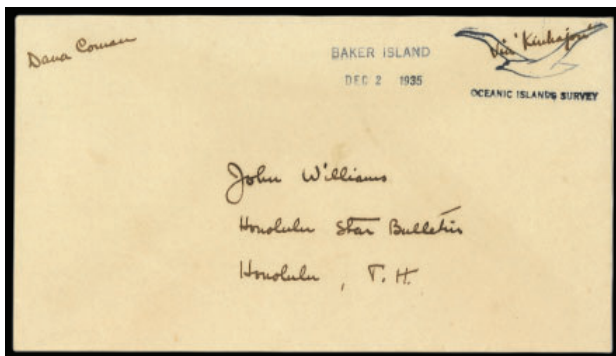 Dana Coman
BAKER ISLAND
DEC 2 1935
Via "Kinkajou"
OCEANIC ISLANDS SURVEY
John Williams
Honolulu Star Bulletin
Honolulu, T.H.